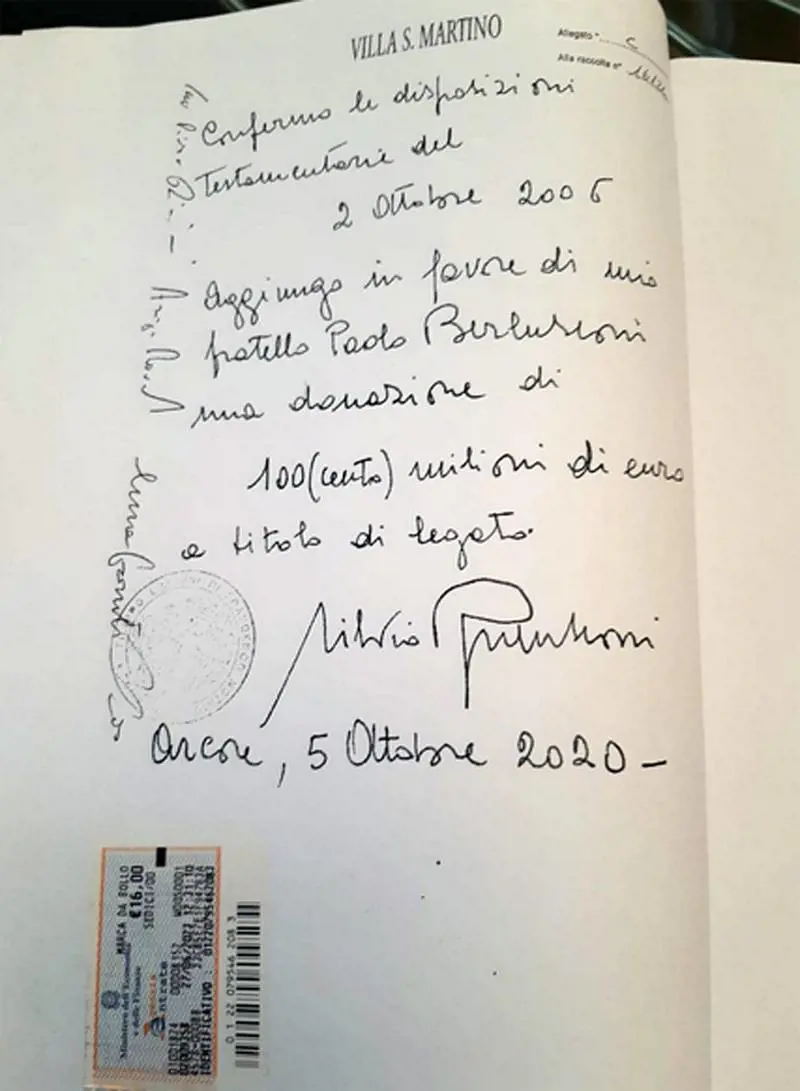 VILLA S. MARTINO
Allegato " C
Alla raccolta n°
Confermo le disposizioni
Testamentarie del
2 Ottobre 2006
Aggiungo in favore di mio
fratello Paolo Berlusconi
una donazione di
100 (cento) milioni di euro
a titolo di legato.
Silvio Berlusconi
Arcore, 5 Ottobre 2020 -
Ministero dell'Economia
e delle Finanze
MARCA DA BOLLO
€16,00
SEDICI/00
Agenzia
Entrate
IDENTIFICATIVO
0 1 22 079546 208 3